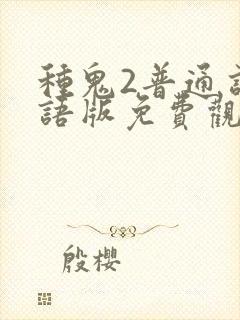 種鬼2普通
語版免費觀
殷櫻